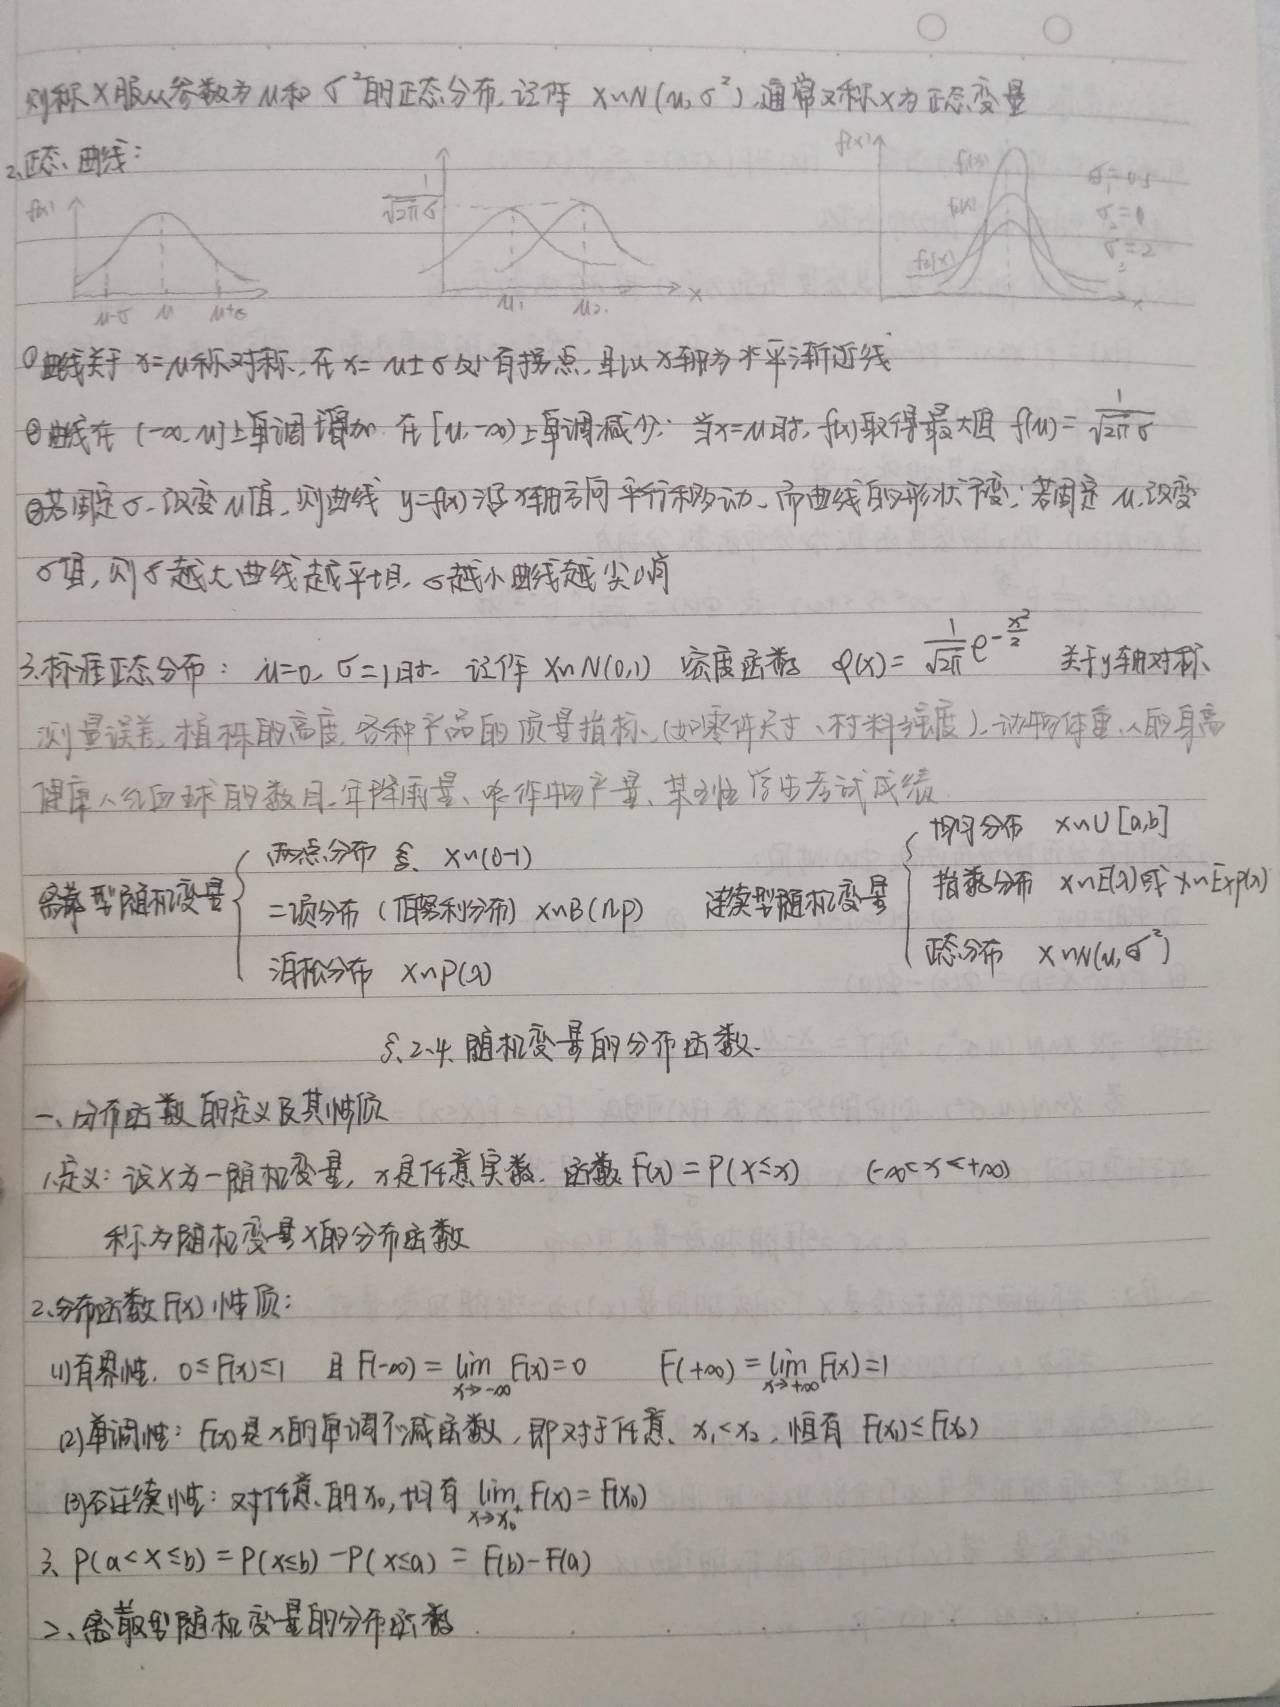 则称X服从参数为μ和σ²的正态分布,记作 X~N(μ,σ²),通常又称X为正态变量
2、正态曲线:
f(x) μ-σ μ μ+σ
1/√2π σ μ₁ μ₂ x
f(x) f₁(x) f₂(x) f₃(x) σ₁=0.5 σ₂= σ₃=2 x
①曲线关于x=μ称对称,在x=μ±σ处有拐点,且以x轴为水平渐近线
②曲线在(-∞,μ]上单调增加 在[μ,-∞)上单调减少;当x=μ时,f(x)取得最大值 f(μ)=1/√2π σ
③若固定σ、改变μ值,则曲线 y=f(x)沿x轴方向平行移动、而曲线的形状不变;若固定μ,改变
σ值,则σ越大曲线越平坦,σ越小曲线越尖峭
3.标准正态分布: μ=0,σ=1时, 记作 X~N(0,1) 密度函数 φ(x)=1/√2π e^(-x²/2) 关于y轴对称、
测量误差,植株的高度,各种产品的质量指标、(如零件尺寸、材料强度)、动物体重、人的身高
健康人红血球的数目、年降雨量、农作物产量、某学生考试成绩
离散型随机变量 { 两点分布 X~(0-1)
二项分布(伯努利分布) X~B(n,p)
泊松分布 X~P(λ)
连续型随机变量 { 均匀分布 X~U[a,b]
指数分布 X~E(λ)或 X~Exp(λ)
正态分布 X~N(μ,σ²)
§、2.4 随机变量的分布函数、
一、分布函数的定义及其性质
1.定义:设X为一随机变量,x是任意实数,函数F(x)=P(X≤x) (-∞<x<+∞)
称为随机变量X的分布函数
2、分布函数F(x)性质:
(1)有界性, 0≤F(x)≤1 且F(-∞)=lim x→-∞ F(x)=0 F(+∞)=lim x→+∞ F(x)=1
(2)单调性:F(x)是x的单调不减函数,即对于任意、x₁<x₂,恒有 F(x₁)≤F(x₂)
(3)右连续性:对任意、的x₀,均有 lim x→x₀⁺ F(x)=F(x₀)
3、P(a<X≤b)=P(X≤b)-P(X≤a)=F(b)-F(a)
二、离散型随机变量的分布函数